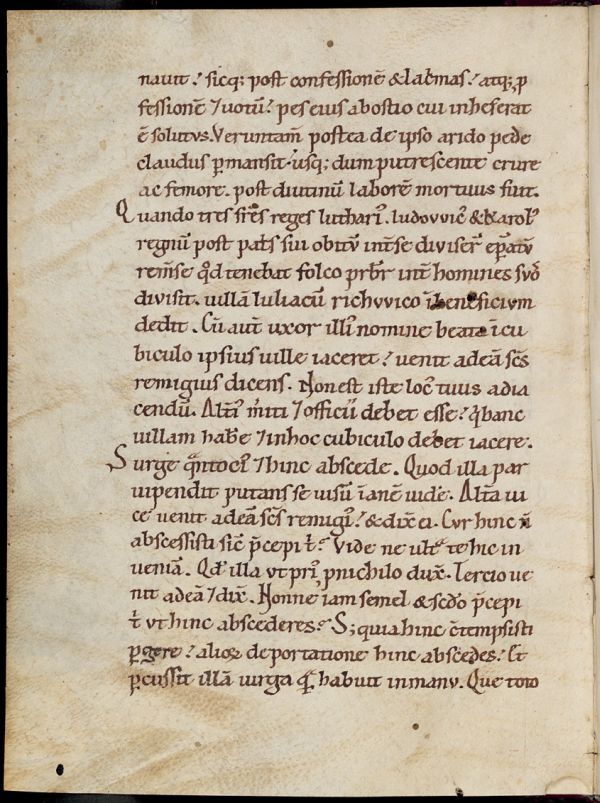 nauit. sicq; post confessionē & lacrimas. atq; p
fessionē ⁊ uotū. pes eius ab ostio cui inheserat
ē solutus. Veruntam̄ postea de ipso arido pede
claudus ꝑmansit. usq; dum putrescente crure
ac femore. post diutinū laborē mortuus fuit.
Quando tres fr̄s reges lutharius. ludouuic' & karol'
regnū post pat̄s sui obitū int̄ se diuiser̄ ep̄atū
rem̄se qd̄ tenebat folco pr̄br int̄ homines suos
diuisit. uillā luliacū richuuico in beneficium
dedit. Cū aut̄ uxor illi' nomine beata in cu
biculo ipsius uille iaceret. uenit ad eā sc̄s
remigius dicens. Non est iste loc' tuus ad ia
cendū. Alti' m̄iti ⁊ officii debet esse. q̄ hanc
uillam hab̄e ⁊ in hoc cubiculo debet iacere.
Surge q̄ntoci' ⁊ hinc abscede. Quod illa par
uipendit putans se uisū inanē uide. Alt̄a ui
ce uenit ad eā sc̄s remigi'. & dix̄ ei. Cur hinc n̄
abscessisti sic' p̄cepi t'. Vide ne ult' te hic in
ueniā. Qd' illa ut pri' ꝑ nichilo dux̄. Tercio ue
nit ad eā ⁊ dix̄. Nonne iam semel & scd'o p̄cepi
t' ut hinc abscederes. S; quia hinc ct̄empsisti
ꝑgere. alioꝝ deportatione hinc abscedes. Et
ꝑcussit illā uirga q̄ habuit in manu. Que toto